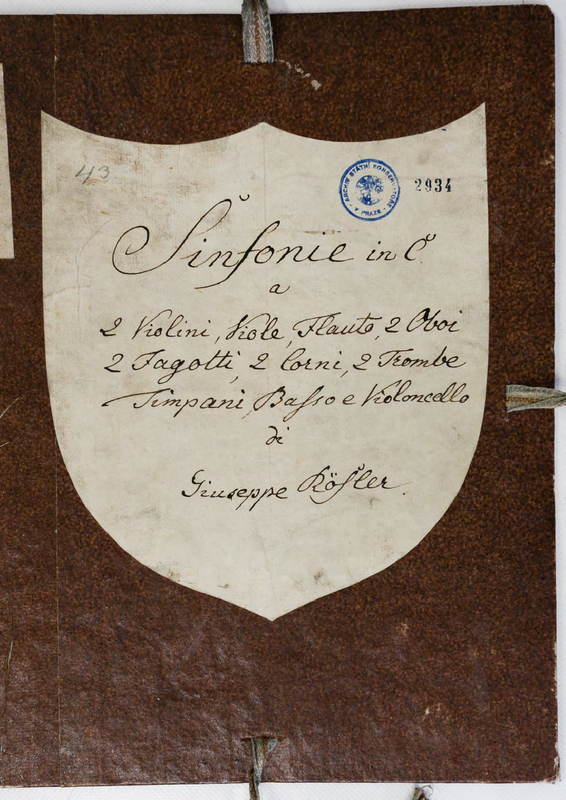 43
ARCHIV STÁTNÍ KONSERVATOŘE V PRAZE
2934
Sinfonie in C
a
2 Violini, Viole, Flauto, 2 Oboi
2 Fagotti, 2 Corni, 2 Trombe
Timpani, Baſso e Violoncello
di
Giuseppe Röſsler.